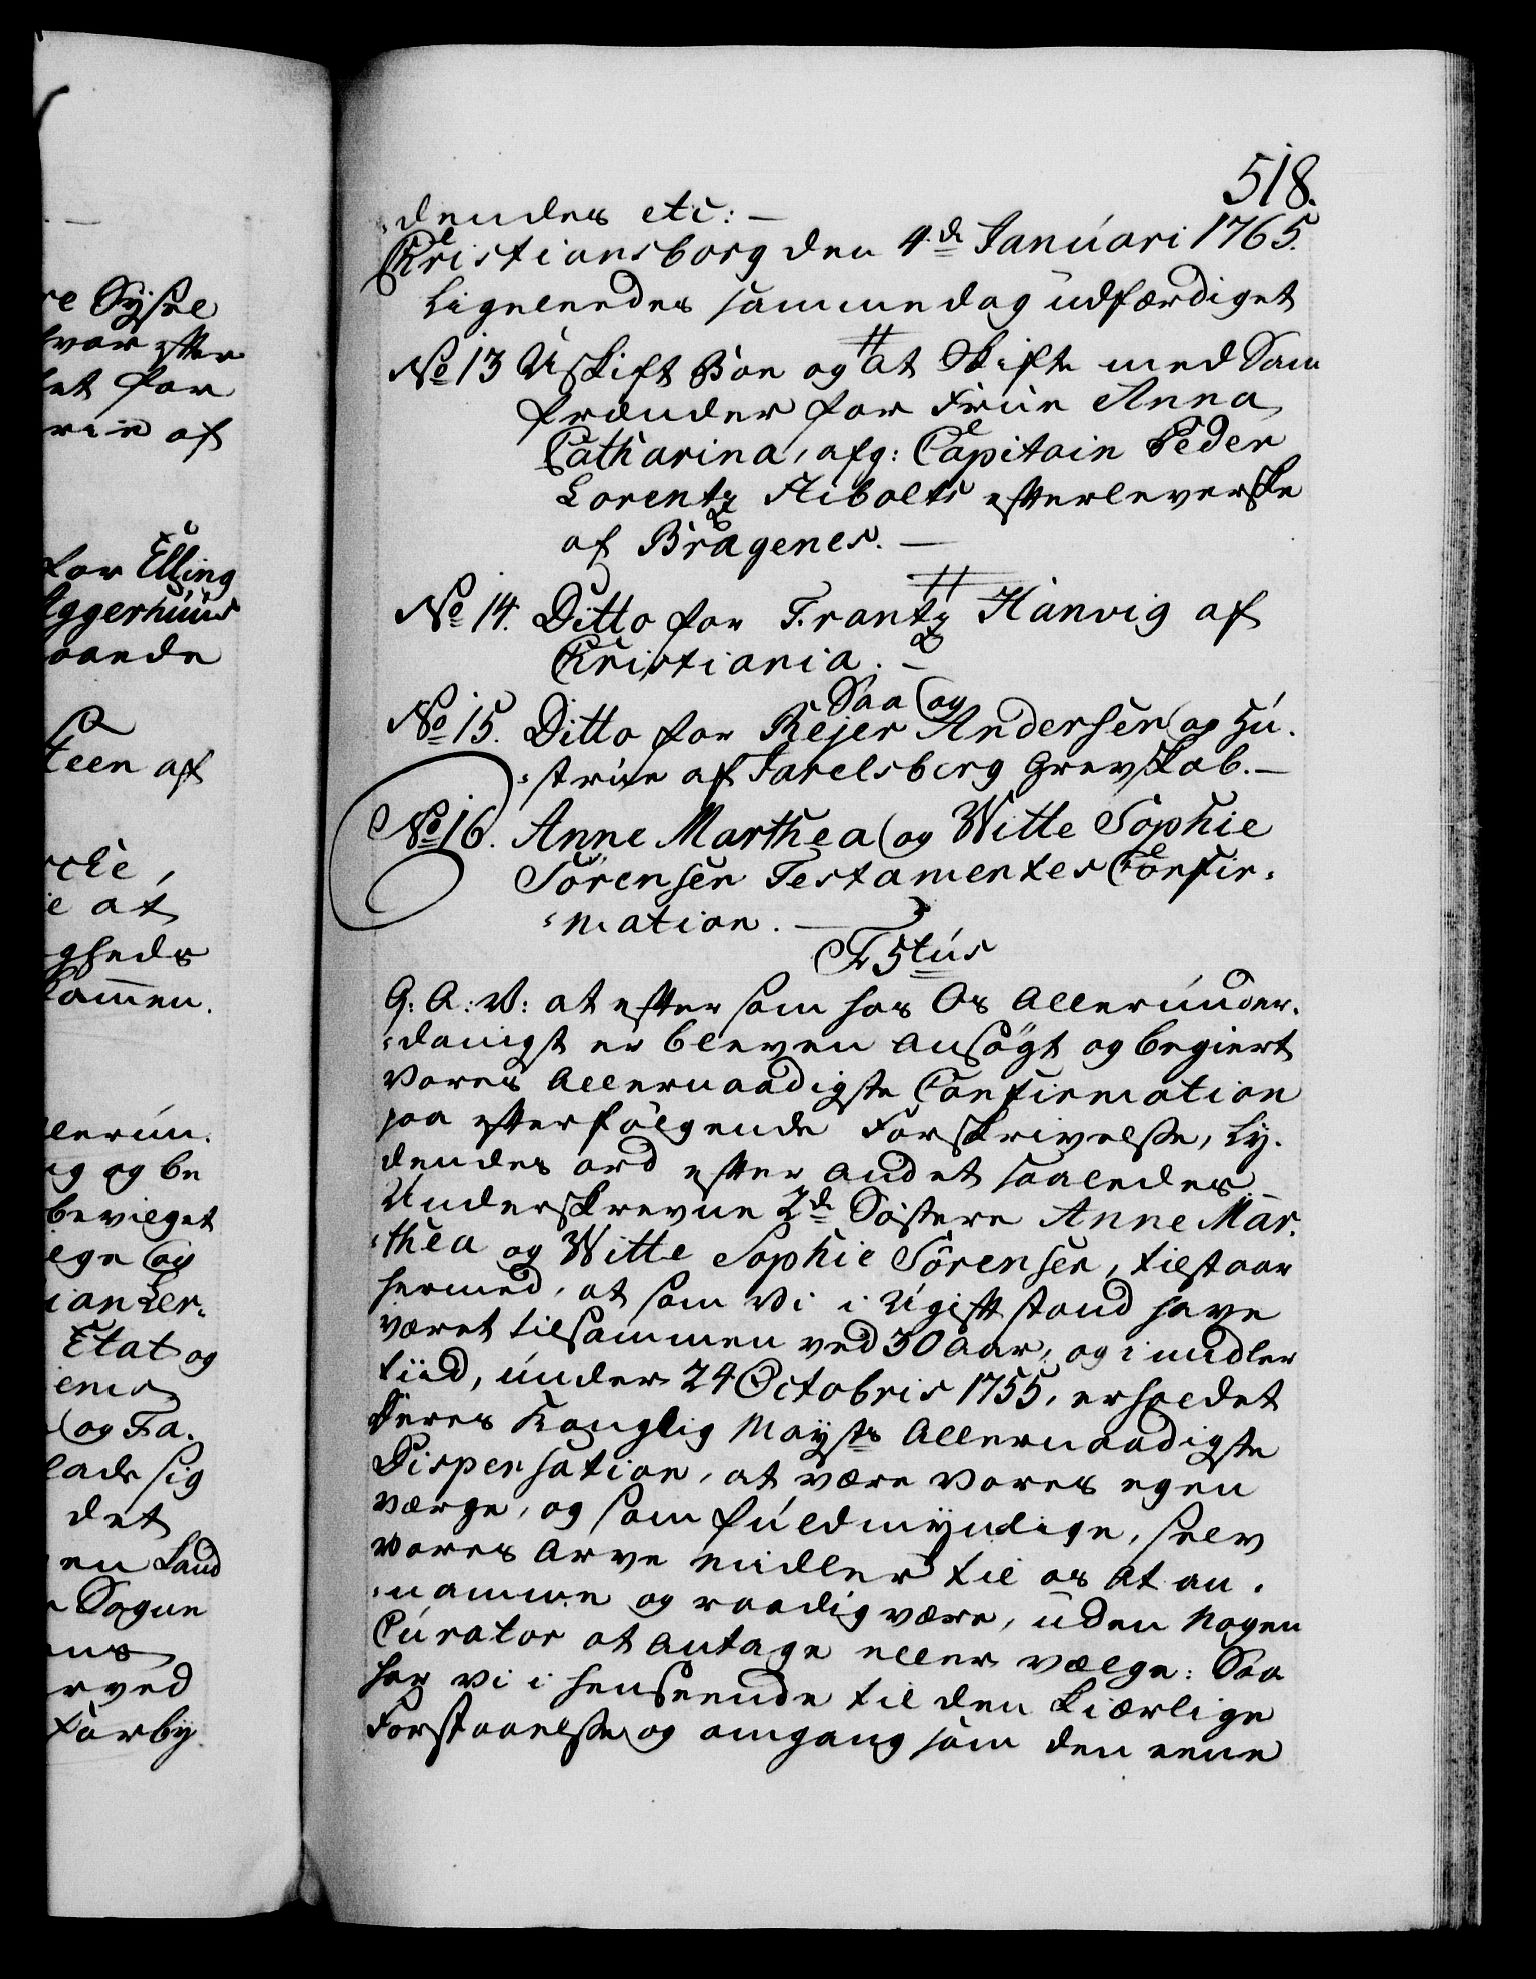 518.
dendes etc: —
Christiansborg den 4de Januari 1765.
Ligeleedes samme dag udfærdiget
No 13 Uskift Boe og at Skifte med Sam
frænder for Frue Anna
Catharina, afg: Capitain Peder
Lorentz Stibolts efterleverske
af Bragenes. —
No 14. Ditto for Frantz Hanvig af
Christiania. —
Saa og
No 15. Ditto for Rejer Andersen og Hu-
strue af Jarelsberg Grevskab. —
No 16. Anne Marthea og Witte Sophie
Sørensen Testamentes Confir-
mation. —
F5tus
G: A: V: at eftersom hos Os Allerunder-
danigst er bleven ansøgt og begiert
Vores Allernaadigste Confirmation
paa efterfølgende Forskrivelse, Ly-
dendes ord efter andet saaledes
Underskrevne 2de Søstere Anne Mar-
thea og Witte Sophie Sørensen, tilstaar
hermed, at som Vi i Ugift stand have
været tilsammen ved 30 aar, og imidler
tiid, under 24 Octobris 1755, erholdet
Deres Konglig Mayts Allernaadigste
Dispensation, at være Vores egen
Værge, og som fuldmyndige, selv
Vores Arve midler til os at an-
namme og raadig være, uden Nogen
Curator at antage eller vælge: Saa
har Vi i henseende til den kiærlige
Forstaaelse og omgang som den eene
re Syssel
hvor efter
let for
rie af
for Elling
Aggerhuus
teen af
rcke,
e at
gheds
kommen.
llerun-
ig og be
bevilget
ege og
ian Ler-
Etat og
og Fa-
lade sig
det
en Land
Sogne
rved
Forby-